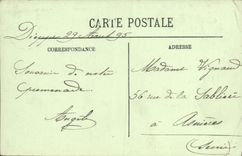 CARTE POSTALE
Dieppe 29 Août 95
CORRESPONDANCE
ADRESSE
Souvenir de notre
promenade
Angèle
Madame Vignaud
56 rue de la Sablière
à Asnières
(Seine)